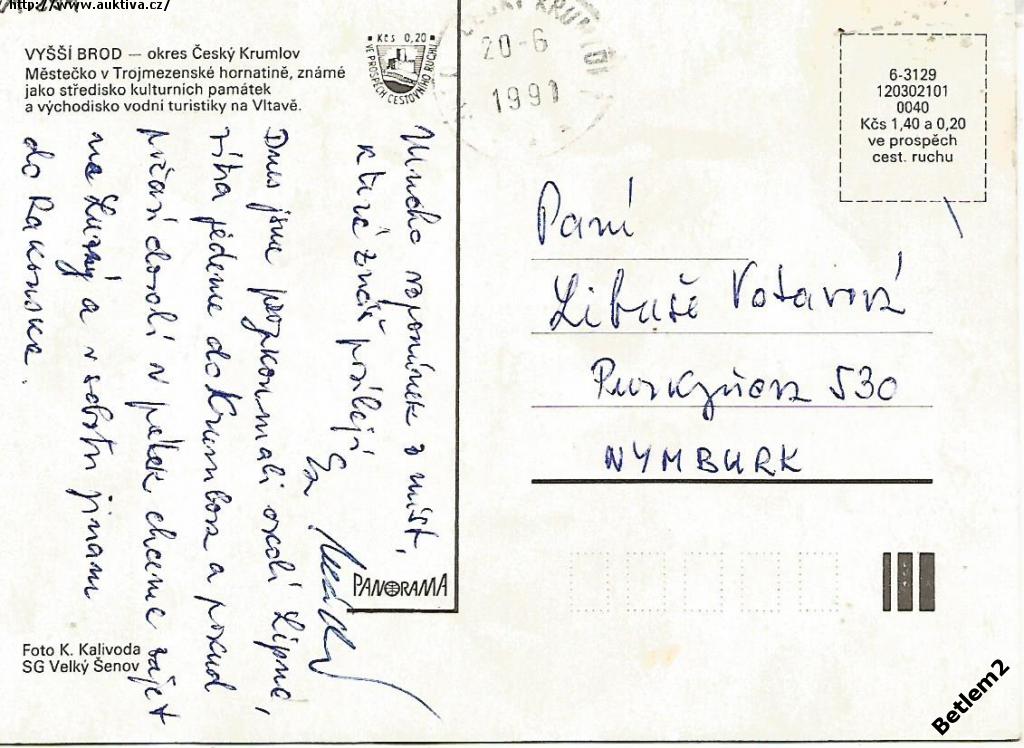 http://www.auktiva.cz/
VYŠŠÍ BROD — okres Český Krumlov
Městečko v Trojmezenské hornatině, známé
jako středisko kulturních památek
a východisko vodní turistiky na Vltavě.
Kčs 0,20
VE PROSPĚCH CESTOVNÍHO RUCHU
ČESKÝ KRUMLOV
20-6
1991
6-3129
120302101
0040
Kčs 1,40 a 0,20
ve prospěch
cest. ruchu
Mnoho vzpomínek z míst,
které znáš posílejí
Dnes jsme prozkoumali okolí Lipna,
zítra jedeme do Krumlova a pokud
počasí dovolí v pátek chceme zajet
na a v sobotu jinam
do Rakouska.
Paní
Libuše Votavová
Purkyňova 530
NYMBURK
PANORAMA
Foto K. Kalivoda
SG Velký Šenov
Betlem2